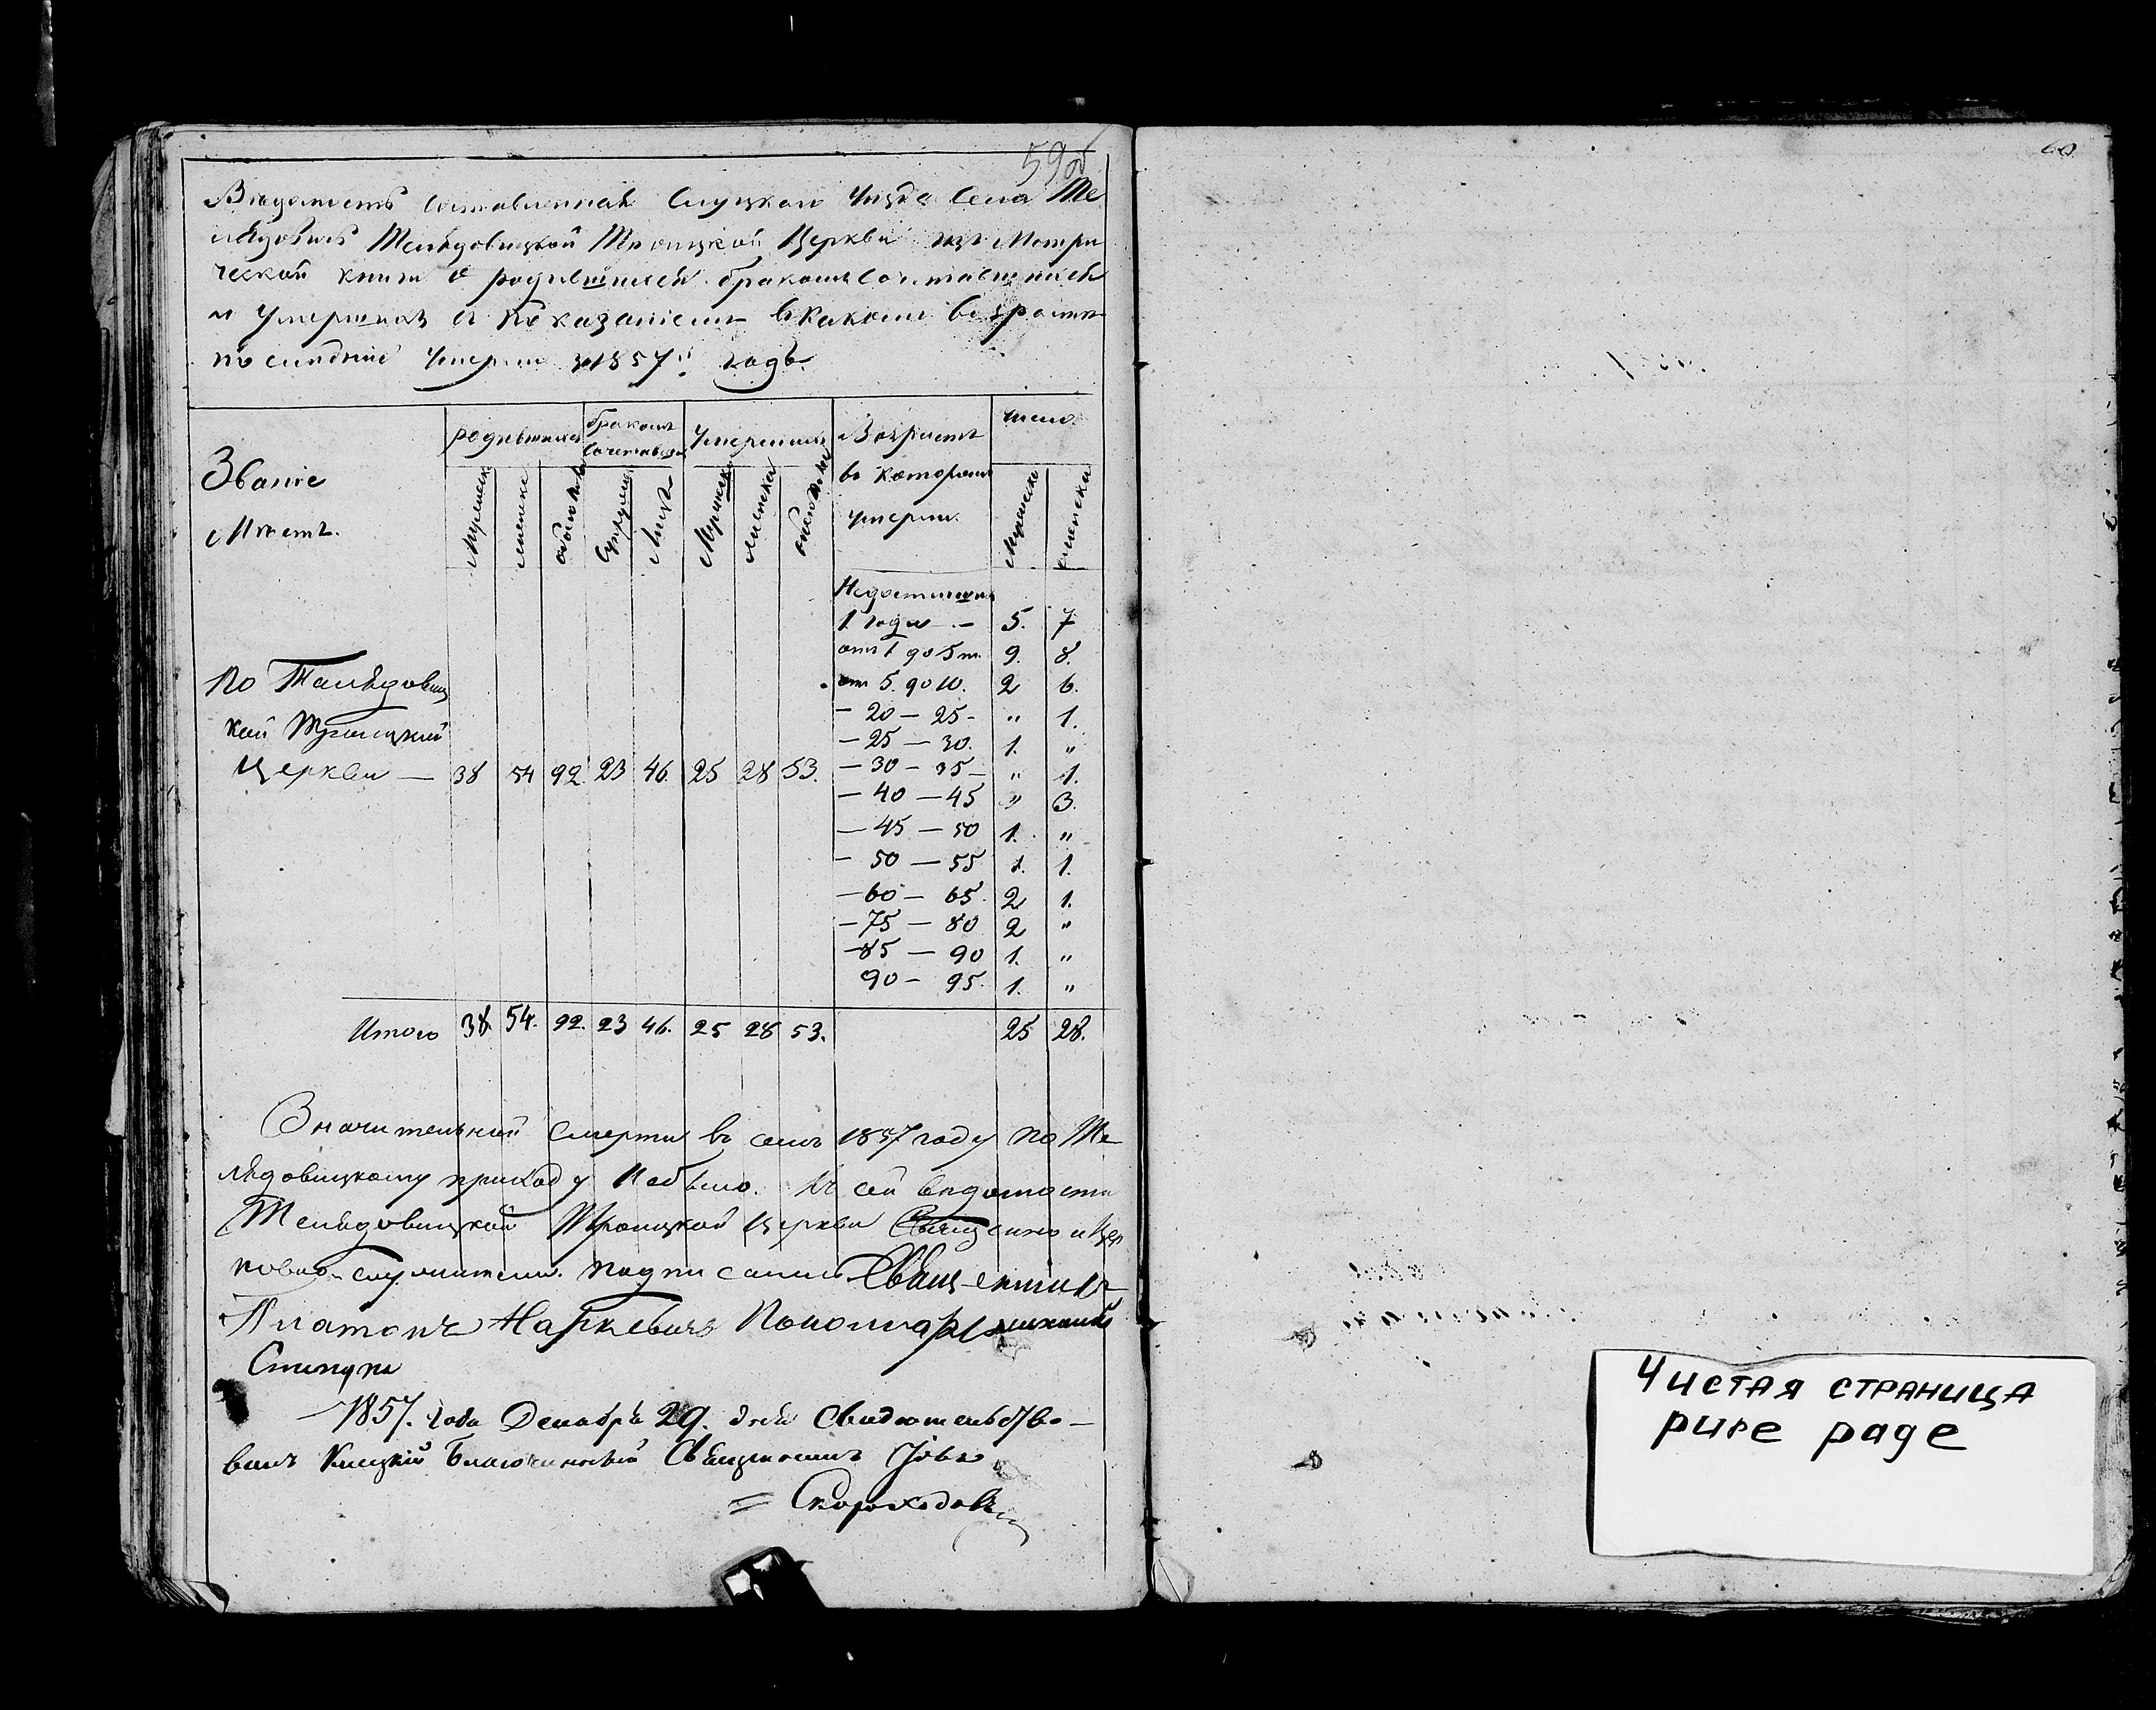 59об
Вѣдомость составленная Слуцкаго уѣзда села Те
лядовичь Телядовицкой Троицкой Церкви изъ Метри
ческой книги о родившихся бракомъ сочетавшихся
и умершихъ съ показаніемъ въ какомъ возрастѣ
послѣдніе умерли за 1857й годъ.
Званіе Мѣстъ. родившихся бракомъ сочетавши умершихъ Возрастъ въ которомъ умерли. число
Мужеска женска обоего пола супружес Лицъ Мужеска женска обоего пола Мужеска женска
Недостигши
1 года — 5. 7
отъ 1 до 5 л. 9. 8.
По Телядовиц отъ 5. до 10. 2 6.
кой Троицкой — 20 — 25 - " 1.
— 25 — 30. 1. "
Церкви — 38 54 92 23 46. 25 28 53. — 30 — 35 — " 1.
— 40 — 45 " 3.
— 45 — 50 1. "
— 50 — 55 1. 1.
— 60 — 65. 2 1.
— 75 — 80 2 "
— 85 — 90 1. "
90 — 95. 1. "
Итого 38. 54. 92. 23 46. 25 28 53. 25 28.
Значительной смерти въ семъ 1857 году по Те
лядовицкому приходу небыло. Къ сей вѣдомости
Телядовицкой Троицкой Церкви Священно и Цер
ковно-служители подписались Священникъ
Платонъ Наркевичъ Пономарь
1857. года Декабря 29. дня Свидѣтельство-
валъ Клецкій Благочинный Священникъ Іовъ
= Скороходовъ
60
Чистая страница
pure page